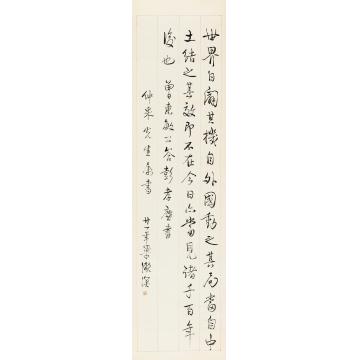 世界日闢其機自外國動之其局當自中
土結之其效即不在今日亦當見諸千百年
後也 曾惠敏公答彭孝廉書
仲來先生屬書 廿一年